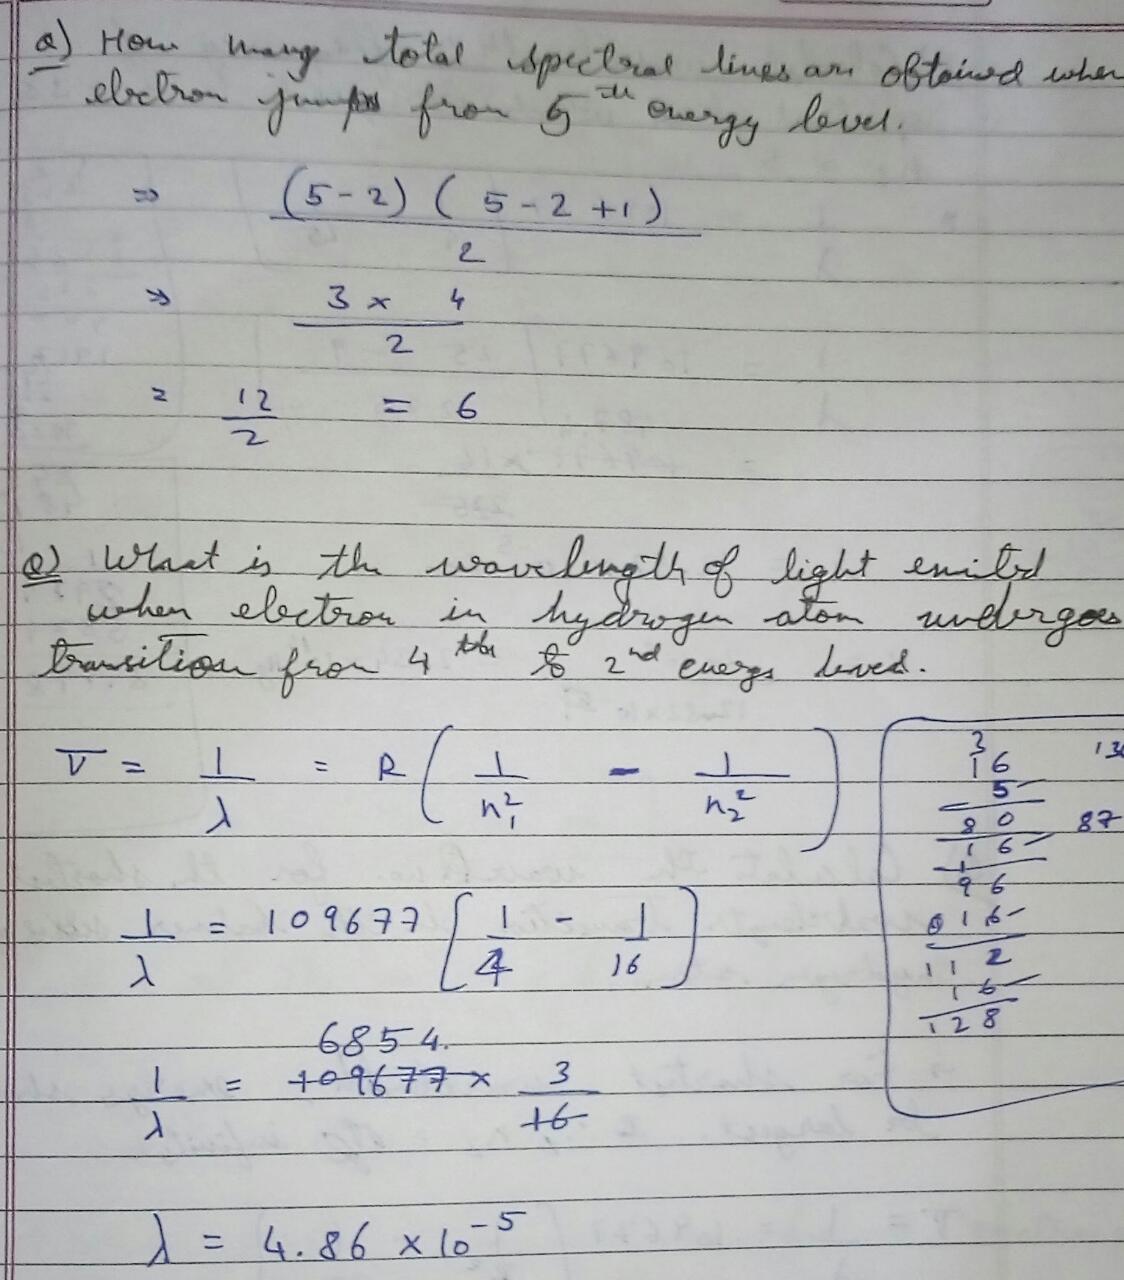 Q) How many total spectral lines are obtained when
electron jumps from 5th energy level.
⇒ (5-2) ( 5-2+1) / 2
⇒ 3 x 4 / 2
= 12 / 2 = 6
Q) What is the wavelength of light emitted
when electron in hydrogen atom undergoes
transition from 4th to 2nd energy level.
ν̅ = 1/λ = R ( 1/n₁² - 1/n₂² )
1/λ = 109677 [ 1/4 - 1/16 ]
6854.
1/λ = 109677 x 3/16
λ = 4.86 x 10⁻⁵
3
16
5
80
16
96
16
112
16
128
87